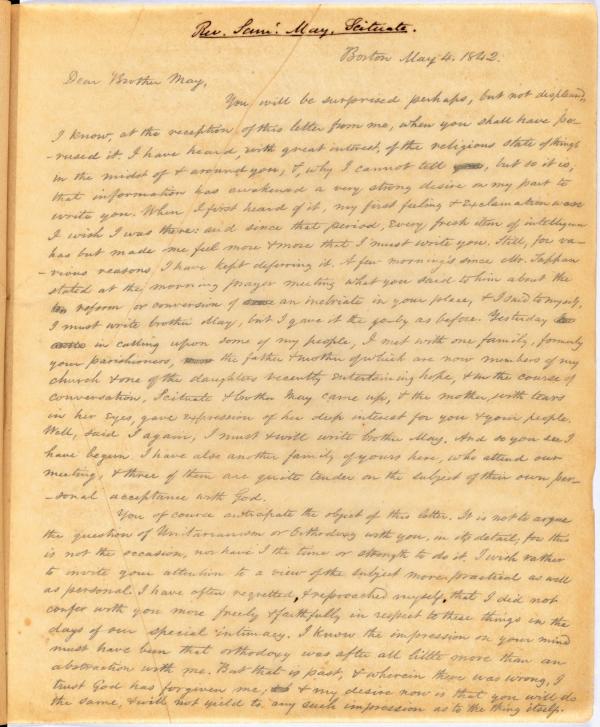 Rev. Saml. May, Scituate.
Boston May 4. 1842.
Dear Brother May,
You will be surprised perhaps, but not displeased,
I know, at the reception of this letter from me, when you shall have pe-
-rused it. I have heard, with great interest, of the religious state of things
in the midst of & around you, &, why I cannot tell, but so it is,
that information has awakened a very strong desire on my part to
write you. When I first heard of it, my first feeling & exclamation was
I wish I was there: and since that period, every fresh item of intelligence
has but made me feel more & more that I must write you. Still, for va-
-rious reasons, I have kept deferring it. A few mornings since Mr. Tappan
stated at the morning prayer meeting what you said to him about the
reform or conversion of an inebriate in your place, & I said to myself,
I must write brother May, but I gave it the go-by as before. Yesterday
in calling upon some of my people, I met with one family, formerly
your parishioners, the father & mother of which are now members of my
church & one of the daughters recently entertaining hope, & in the course of
conversation, Scituate & brother May came up, & the mother, with tears
in her eyes, gave expression of her deep interest for you & your people.
Well, said I again, I must & will write brother May. And so you see I
have begun. I have also another family of yours here, who attend our
meeting, & three of them are quite tender on the subject of their own per-
-sonal acceptance with God.
You of course anticipate the object of this letter. It is not to argue
the question of Unitarianism or Orthodoxy with you, in its detail, for this
is not the occasion, nor have I the time or strength to do it. I wish rather
to invite your attention to a view of the subject more practical as well
as personal. I have often regretted, & reproached myself, that I did not
confer with you more freely & faithfully in respect to these things in the
days of our special intimacy. I know the impression on your mind
must have been that orthodoxy was after all little more than an
abstraction with me. But that is past, & wherein there was wrong, I
trust God has forgiven me, & my desire now is that you will do
the same, & will not yield to any such impression as to the thing itself.